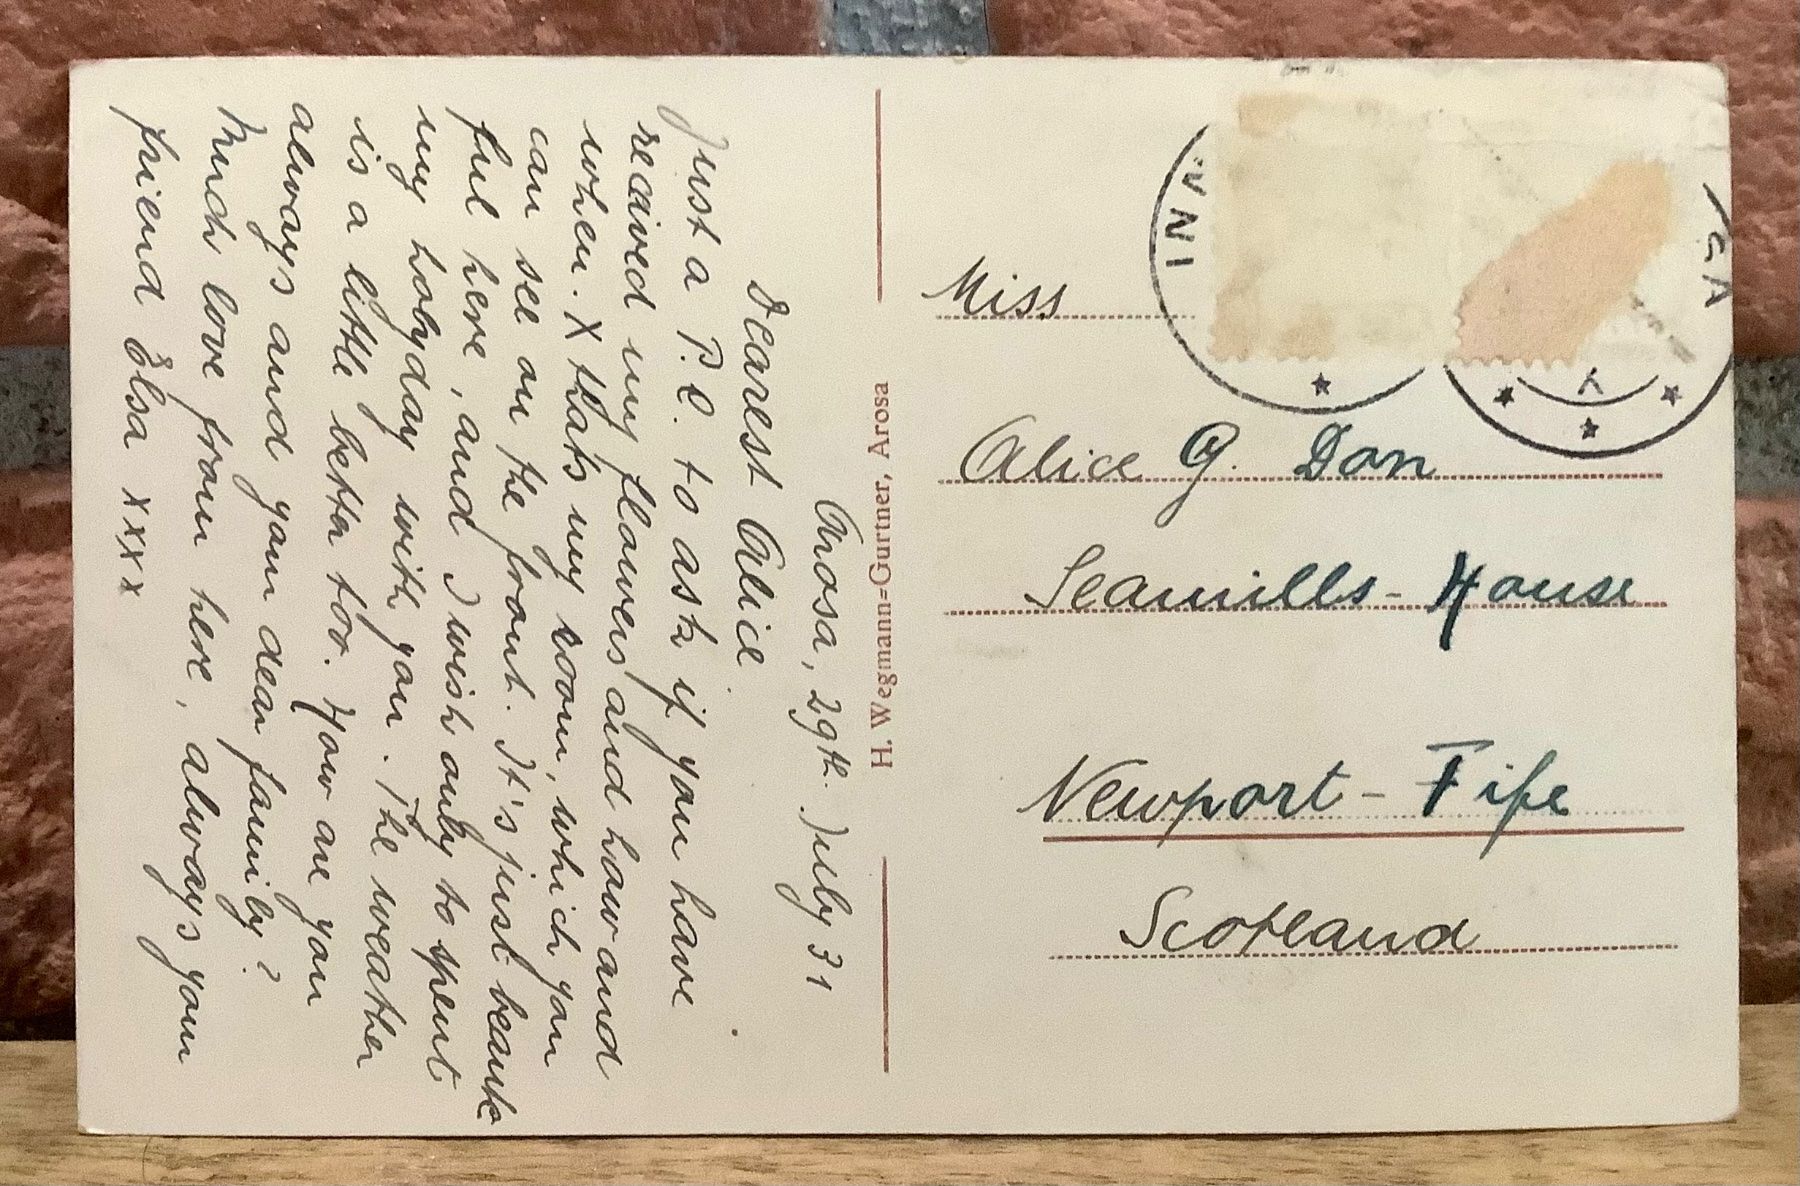 Arosa, 29th. July 31
Dearest Alice
Just a P.C. to ask if you have
received my flowers and how and
when. X thats my room, which you
can see on the front. It's just beauti
ful here, and I wish only to spent
my holyday with you. The weather
is a little bettr too. How are you
always and your dear family?
Much love from here, always your
friend Elsa xxxx
H. Wegmann=Gurtner, Arosa
Miss
Alice G. Don
Seamills-House
Newport-Fife
Scotland